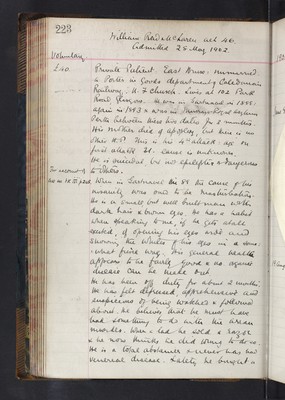 223
William Reid McLaren aet 46.
Admitted 28 May 1902.
Voluntary
£40. Private Patient. East House. unmarried
a Porter in Goods department of Caledonian
Railway. U. F. Church. Lives at 102 Park
Road Glasgow. Was in Gartnavel in 1888.
again in 1893 & was in Asylum
Perth between these two dates for 2 months
His mother died of apoplexy, but there is no
other H.P. This is his attack: age on
first attack & cause is unknown.
He is suicidal but not epileptic or dangerous
to others.
When in Gartnavel in 88 the cause of his
insanity was said to be masturbation
He is a small but well built man with
dark hair & brown eyes. He has a habit
when speaking & as if he gets
excited, of opening his eyes wide and
showing the whites of his eyes in a some-
what fierce way. His general health
appears to be fairly good & no organic
disease can be made out
He has been off duty for about 2 months.
He has felt depressed, apprehensive and
suspicious of being watched & followed
about. He believes that he must have
had something to do with the Arran
murder. When a lad he sold a razor
& he now thinks he did wrong to do so.
He is a total abstainer & never has had
venereal disease. Lately he bought a